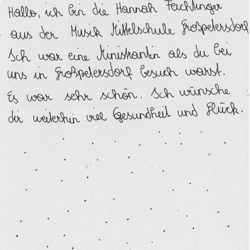 Hallo, ich bin die Hannah Feichtinger
aus der Musik Mittelschule Großpetersdorf
Ich war eine Ministrantin als du bei
uns in Großpetersdorf besuch warst.
Es war sehr schön. Ich wünsche
dir weiterhin viel Gesundheit und Glück.